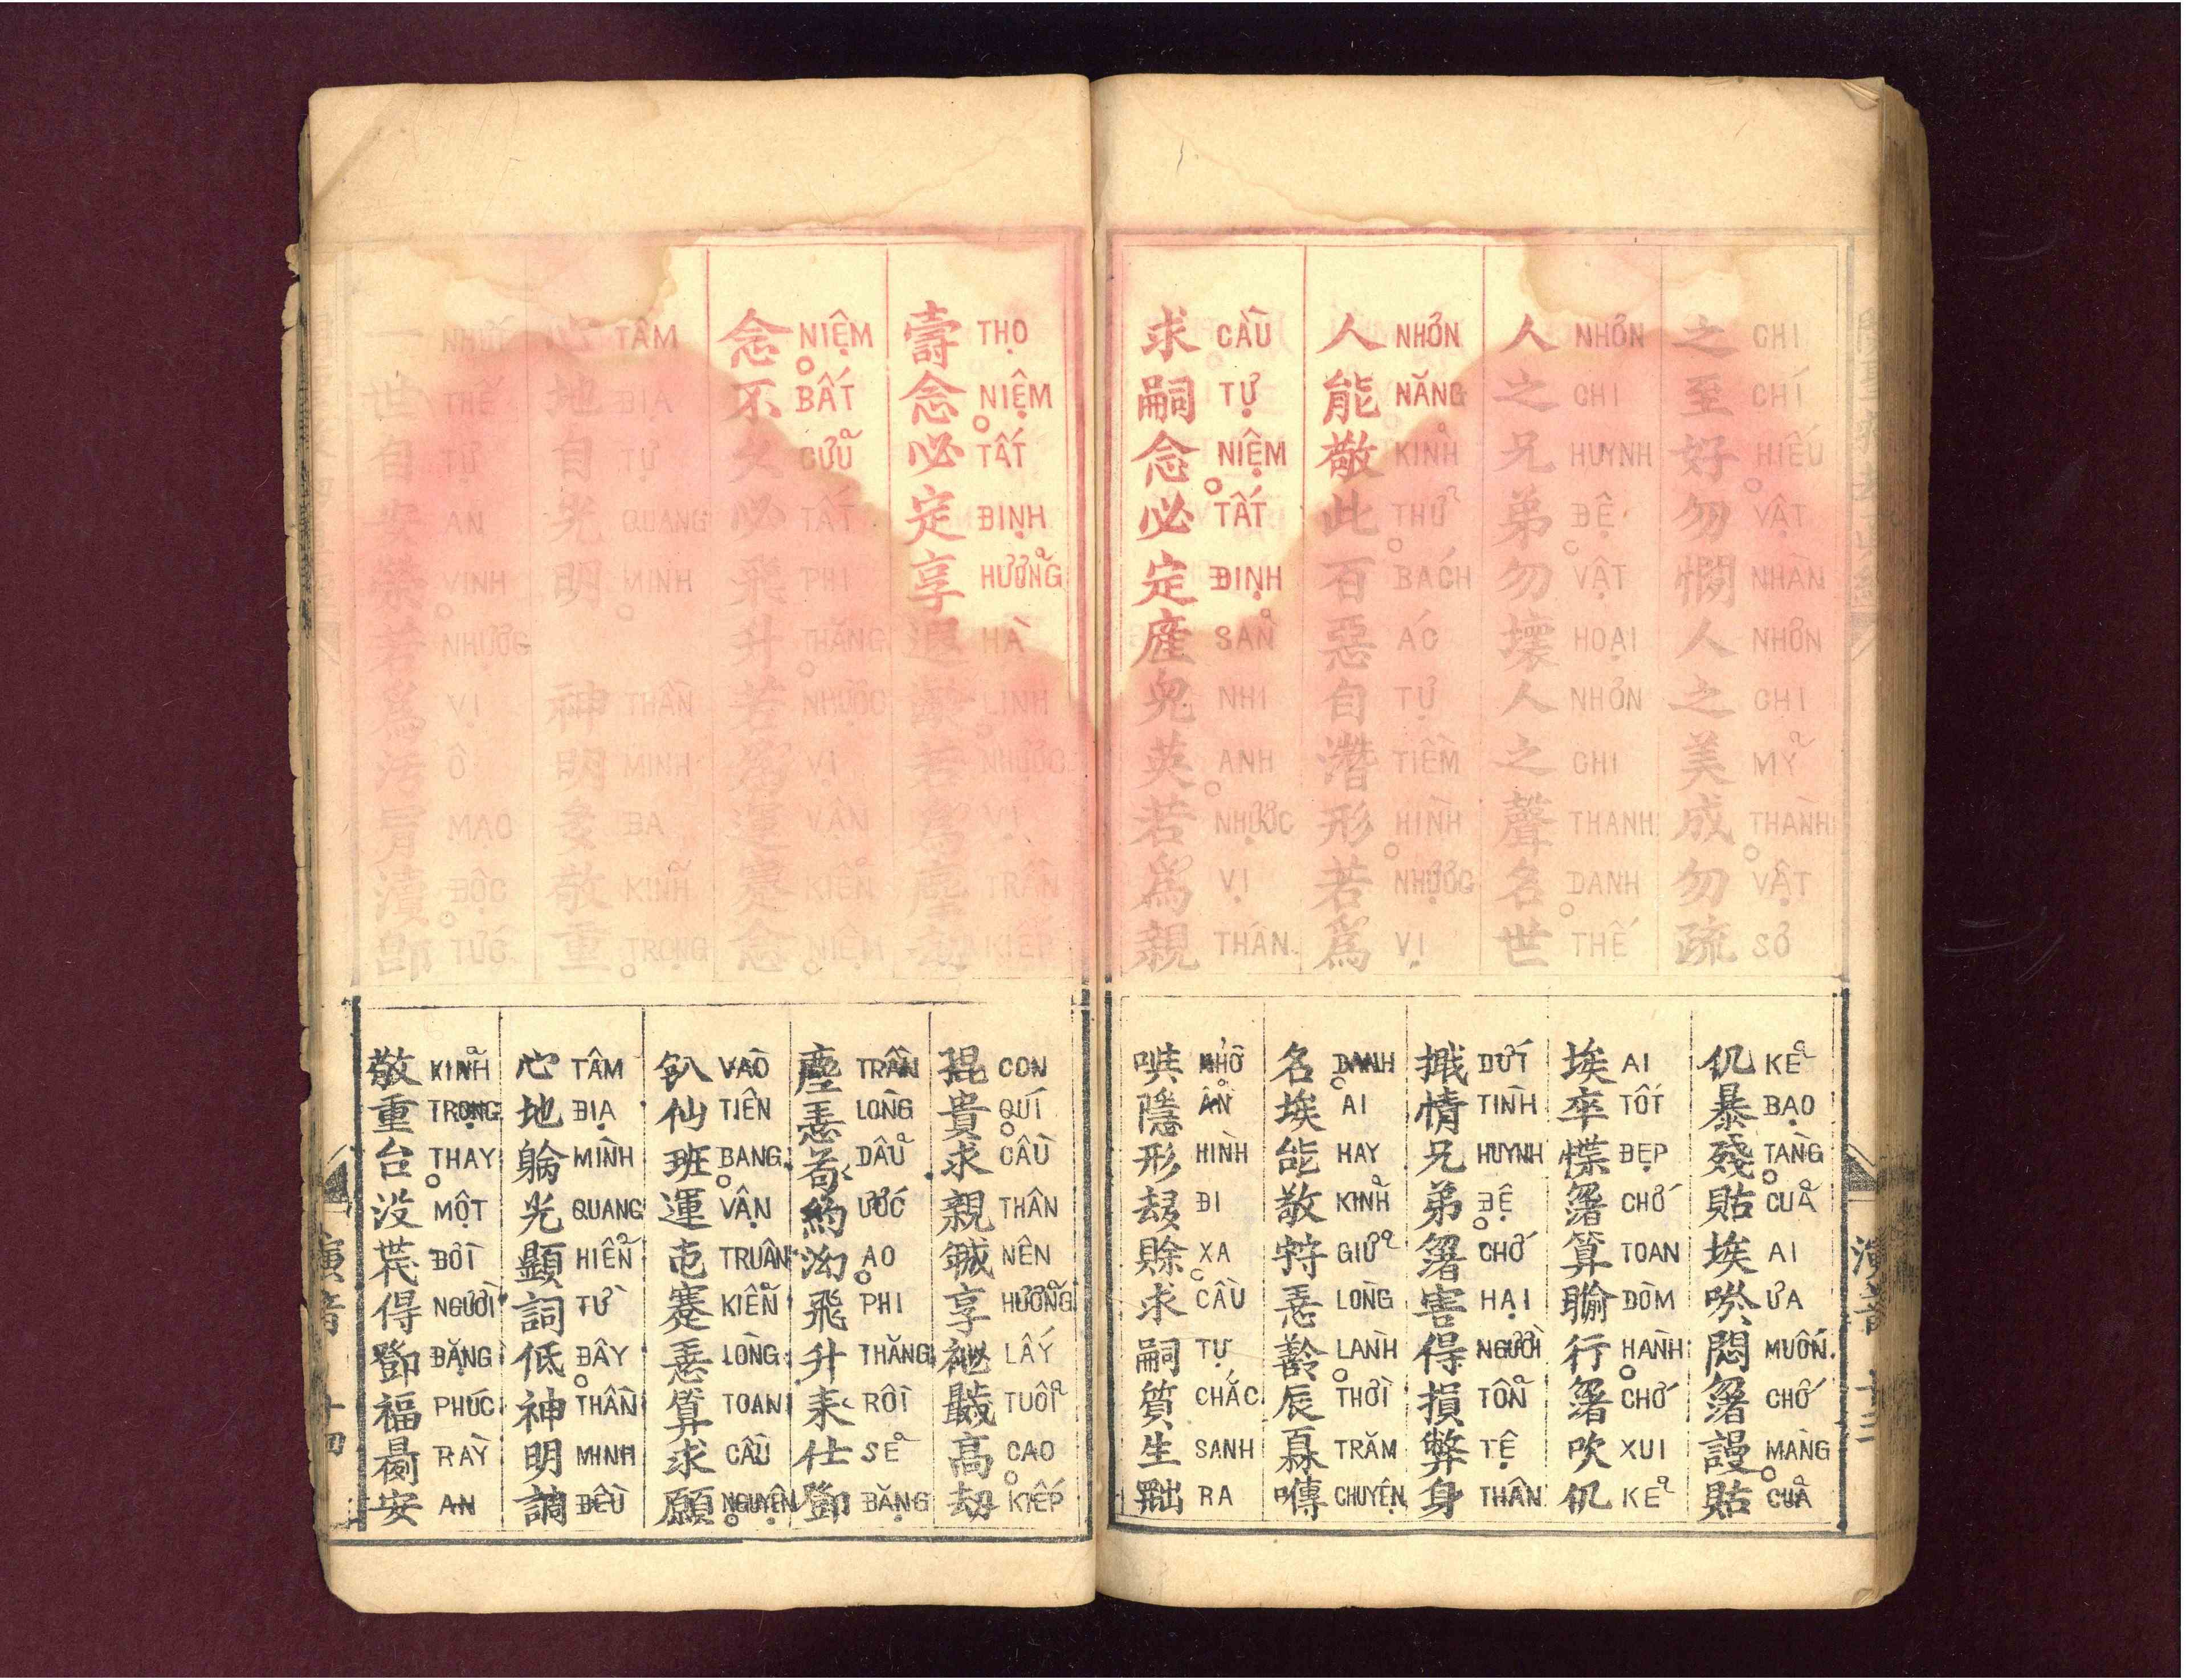 之至好勿憪人之美成勿疏
CHI CHÍ HIẾU VẬT NHÀN NHƠN CHI MỸ THÀNH VẬT SƠ
人之兄弟勿壞人之聲名世
NHƠN CHI HUYNH ĐỆ VẬT HOẠI NHƠN CHI THANH DANH THẾ
人能敬此百惡自潛形若爲
NHƠN NĂNG KINH THỬ BÁCH ÁC TỰ TIỀM HÌNH NHƯỢC VỊ
求嗣念必定産兒英若爲親
CẦU TỰ NIỆM TẤT ĐỊNH SẢN NHI ANH NHƯỢC VỊ THÂN
仉暴殘貼埃唹悶𥯉謾貼
KẺ BẠO TÀNG CUẢ AI ƯA MUỐN CHỚ MÀNG CUẢ
埃卒惵𥯉算𥈶行𥯉吹仉
AI TỐT ĐẸP CHỚ TOAN DÒM HẠNH CHỚ XUI KẺ
情兄弟𥯉害得損弊身
DỨT TÌNH HUYNH ĐỆ CHỚ HẠI NGƯỜI TỔN TỆ THÂN
名埃能敬𡨹𢚸辰𤾓囀
DANH AI HAY KINH GIỮ LÒNG LÀNH THỜI TRĂM CHUYỆN
隱形𠫾賒求嗣質生𠚢
NHỎ ẨN HÌNH ĐI XA CẦU TỰ CHẮC SANH RA
壽念必定享遐齡若爲塵刧
THỌ NIỆM TẤT ĐỊNH HƯỞNG HÀ LINH NHƯỢC VỊ TRẦN KIẾP
念不久必飛升若爲運蹇念
NIỆM BẤT CỬU TẤT PHI THĂNG NHƯỢC VỊ VẬN KIỂN NIỆM
心地自光明 神明多敬重
TÂM ĐỊA TỰ QUANG MINH THẦN MINH ĐA KINH TRỌNG
一世自安榮若爲污冒瀆卽
NHỨT THẾ TỰ AN VINH NHƯỢC VỊ Ô MẠO ĐỘC TỨC
貴求親𢧚享𥙩高刼
CON QUÍ CẦU THÂN NÊN HƯỞNG LẤY TUỔI CAO KIẾP
塵𢚸苟約泑飛升耒仕鄧
TRẦN LÒNG DẦU ƯỚC AO PHI THĂNG RỒI SẺ ĐẶNG
𠓨仙班運屯蹇𢚸算求願
VÀO TIÊN BANG VẬN TRUÂN KIỂN LÒNG TOAN CẦU NGUYỆN
心地躺光顯詞低神明調
TÂM ĐỊA MÌNH QUANG HIỂN TỪ ĐÂY THẦN MINH ĐỀU
敬重台没得鄧福安
KINH TRỌNG THAY MỘT ĐỜI NGƯỜI ĐẶNG PHÚC RÀY AN
演音 十三
演音 十四